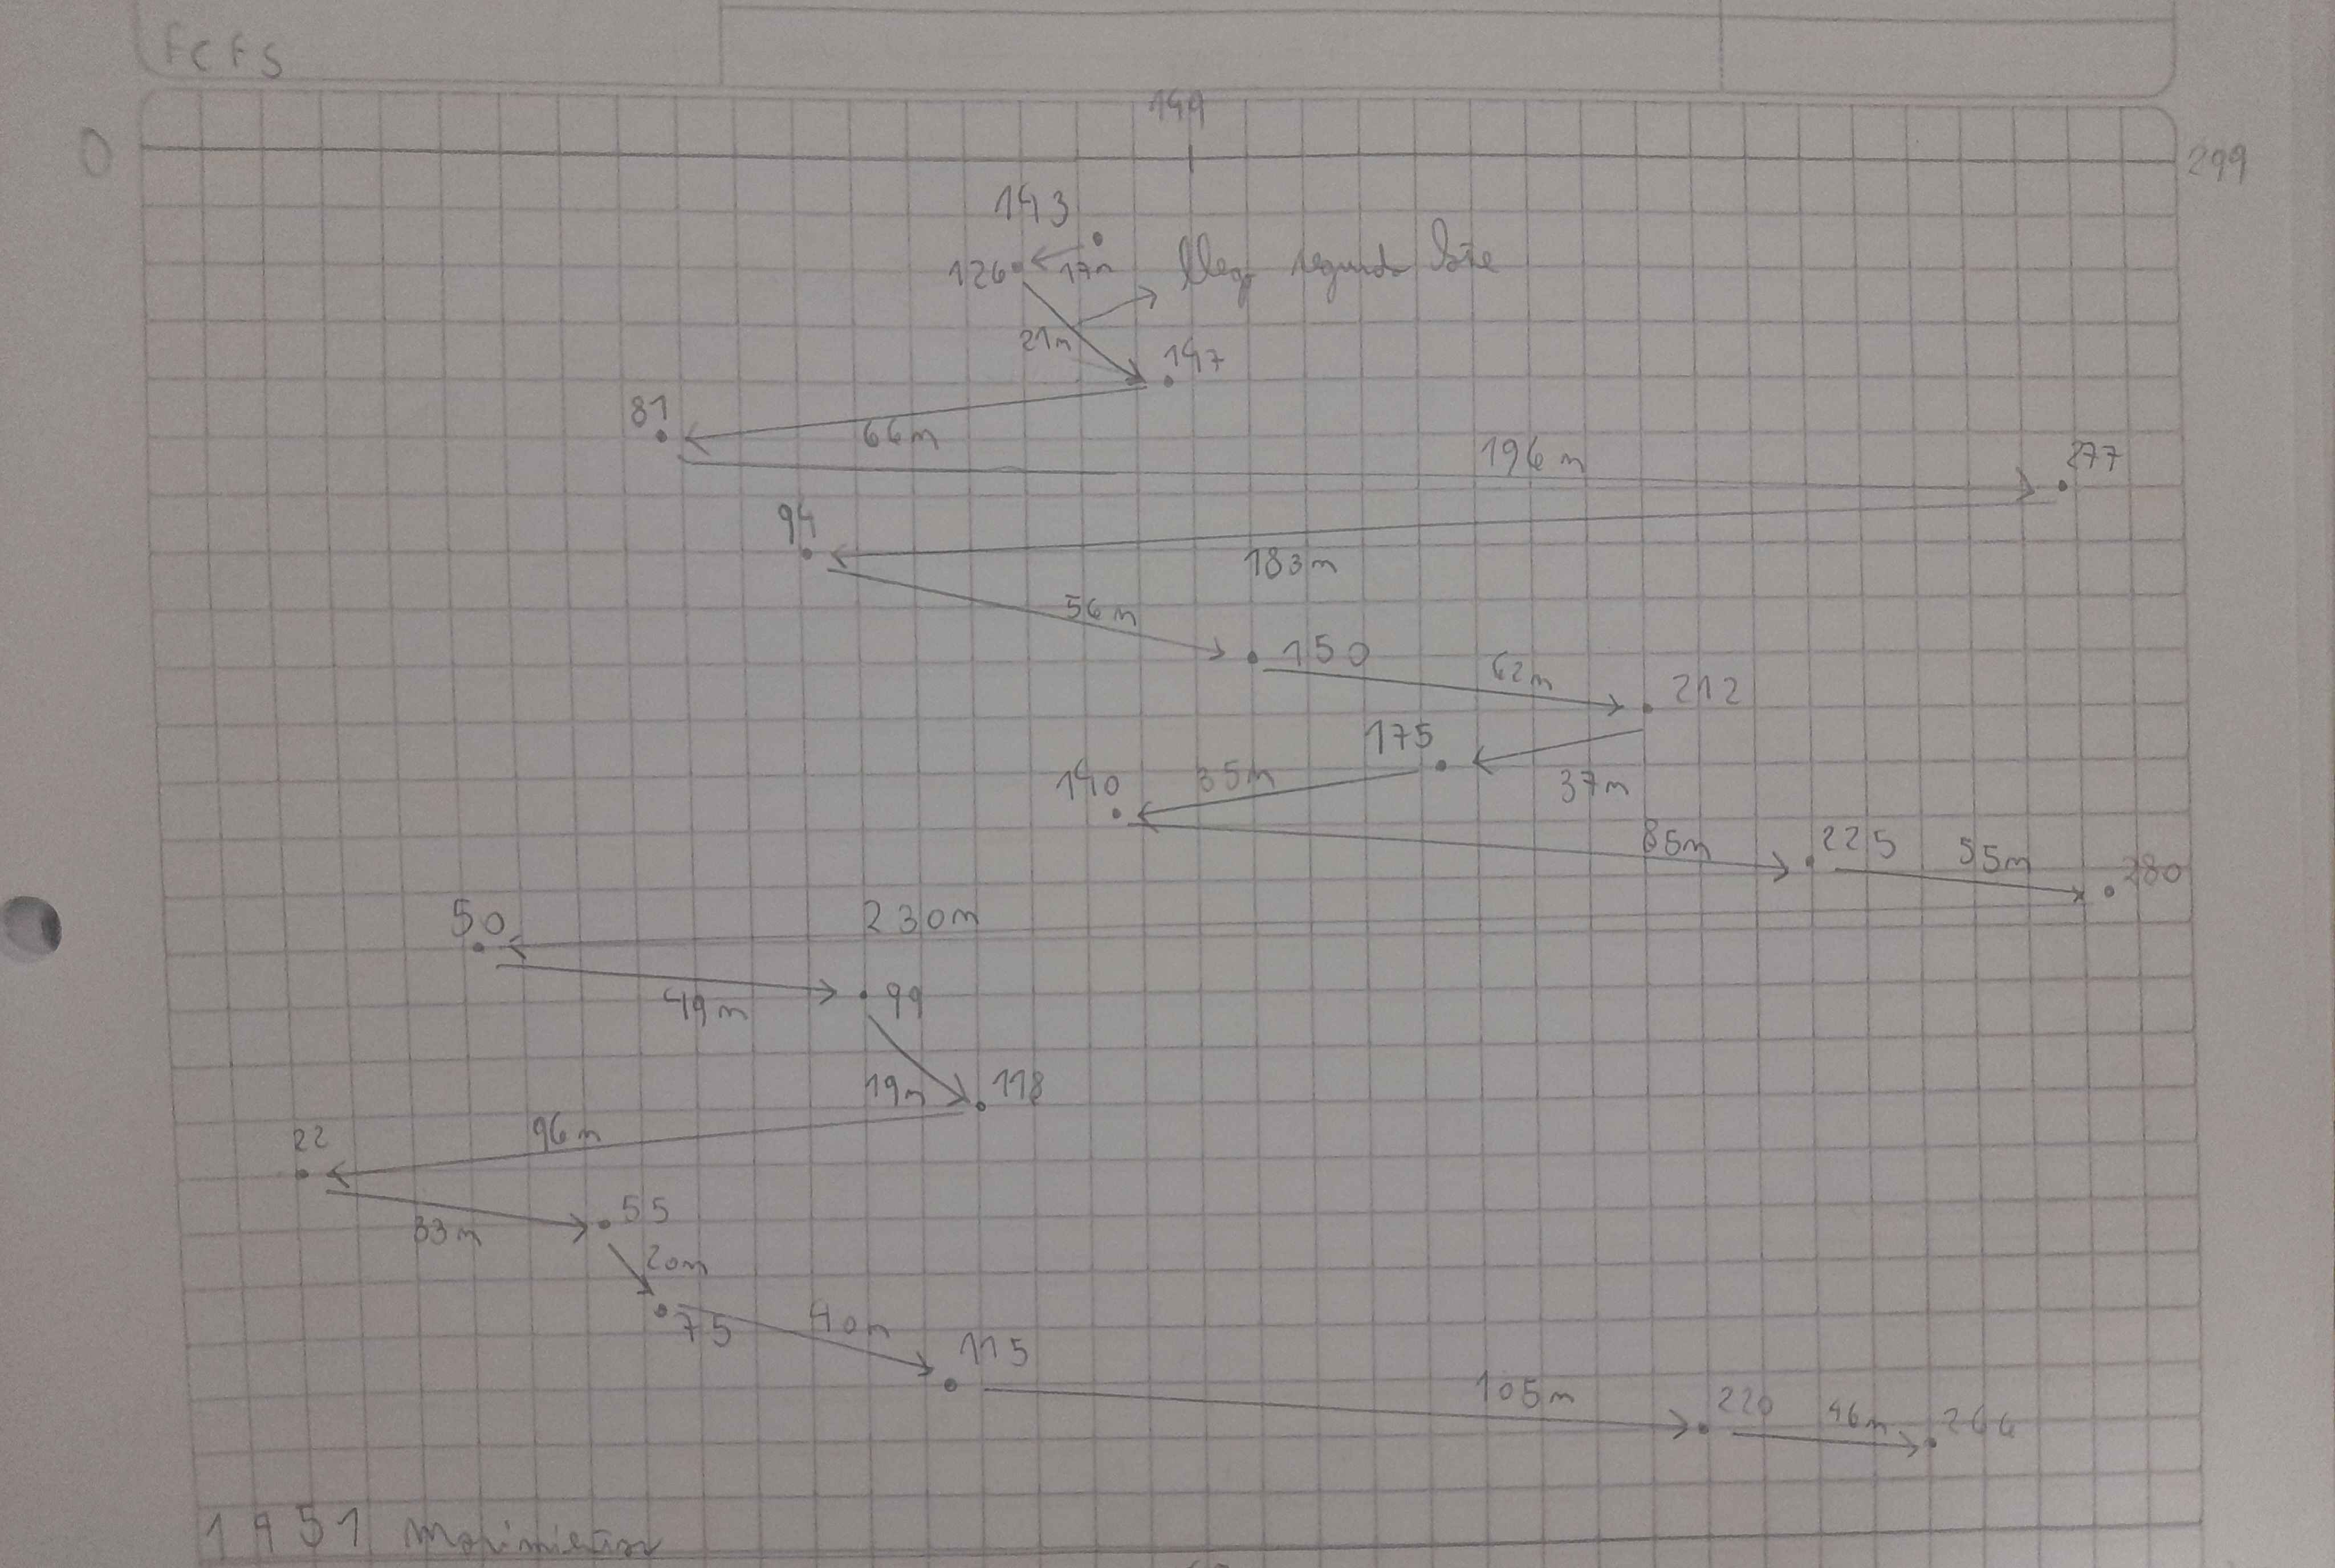 FCFS
149
0 299
143
126 17m llega segundo lote
21m 147
81 66m
196m 277
94
183m
56m
150 62m 212
175
140 35m 37m
85m 225 55m 280
50 230m
49m 99
19m 118
22 96m
33m 55
20m
75 40m
115
105m 220 46m 266
1451 movimientos